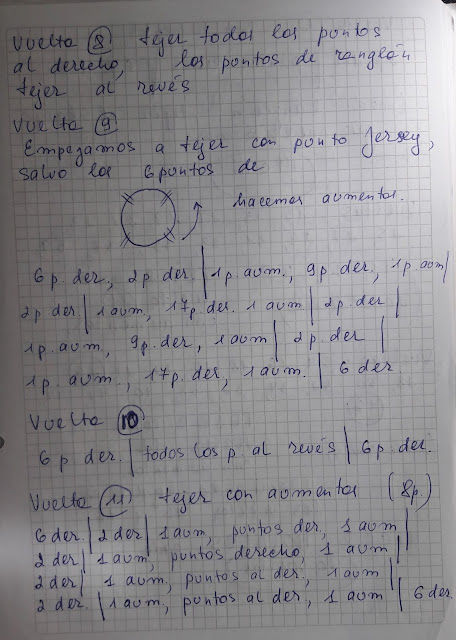 Vuelta 8 tejer todos los puntos
al derecho, los puntos de ranglán
tejer al revés
Vuelta 9
Empezamos a tejer con punto Jersey,
salvo los 6 puntos de
hacemos aumentos.
6 p. der., 2 p der. | 1 p. aum., 9 p. der, 1 p. aum |
2 p der | 1 aum, 17 p. der. 1 aum | 2 p. der |
1 p. aum, 9 p. der, 1 aum | 2 p. der |
1 p. aum., 17 p. der, 1 aum. | 6 der
Vuelta 10
6 p der. | todos los p al revés | 6 p. der.
Vuelta 11 tejer con aumentos (8p.)
6 der. | 2 der | 1 aum, puntos der, 1 aum |
2 der | 1 aum, puntos derecho, 1 aum |
2 der | 1 aum, puntos al der., 1 aum |
2 der. | 1 aum, puntos al der., 1 aum | 6 der